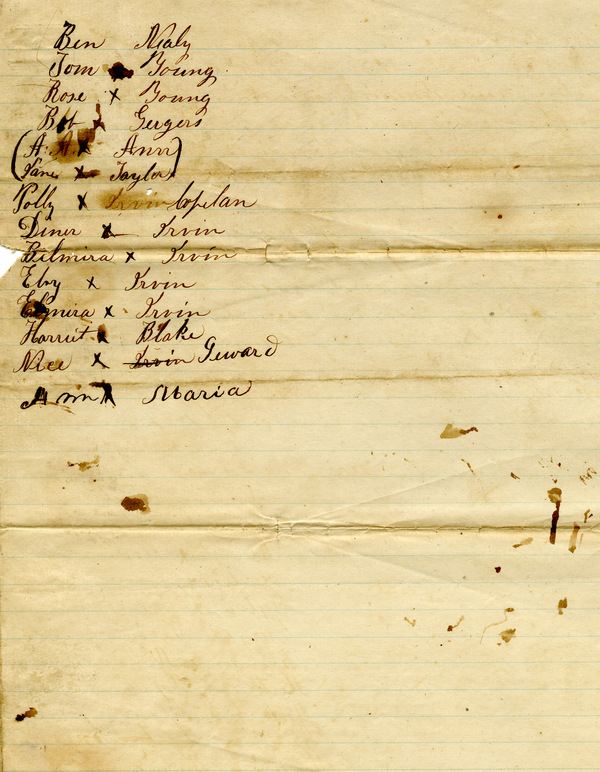 Ben Nealy
Tom x Young
Rose x Young
Bob x Gergers
(A. A. x Ann)
(Jane x Taylor)
Polly x Irvin Copelan
Diner x Irvin
Bilmira x Irvin
Eby x Irvin
Elmira x Irvin
Harriet x Blake
Nice x Irvin Seward
Ann x Maria